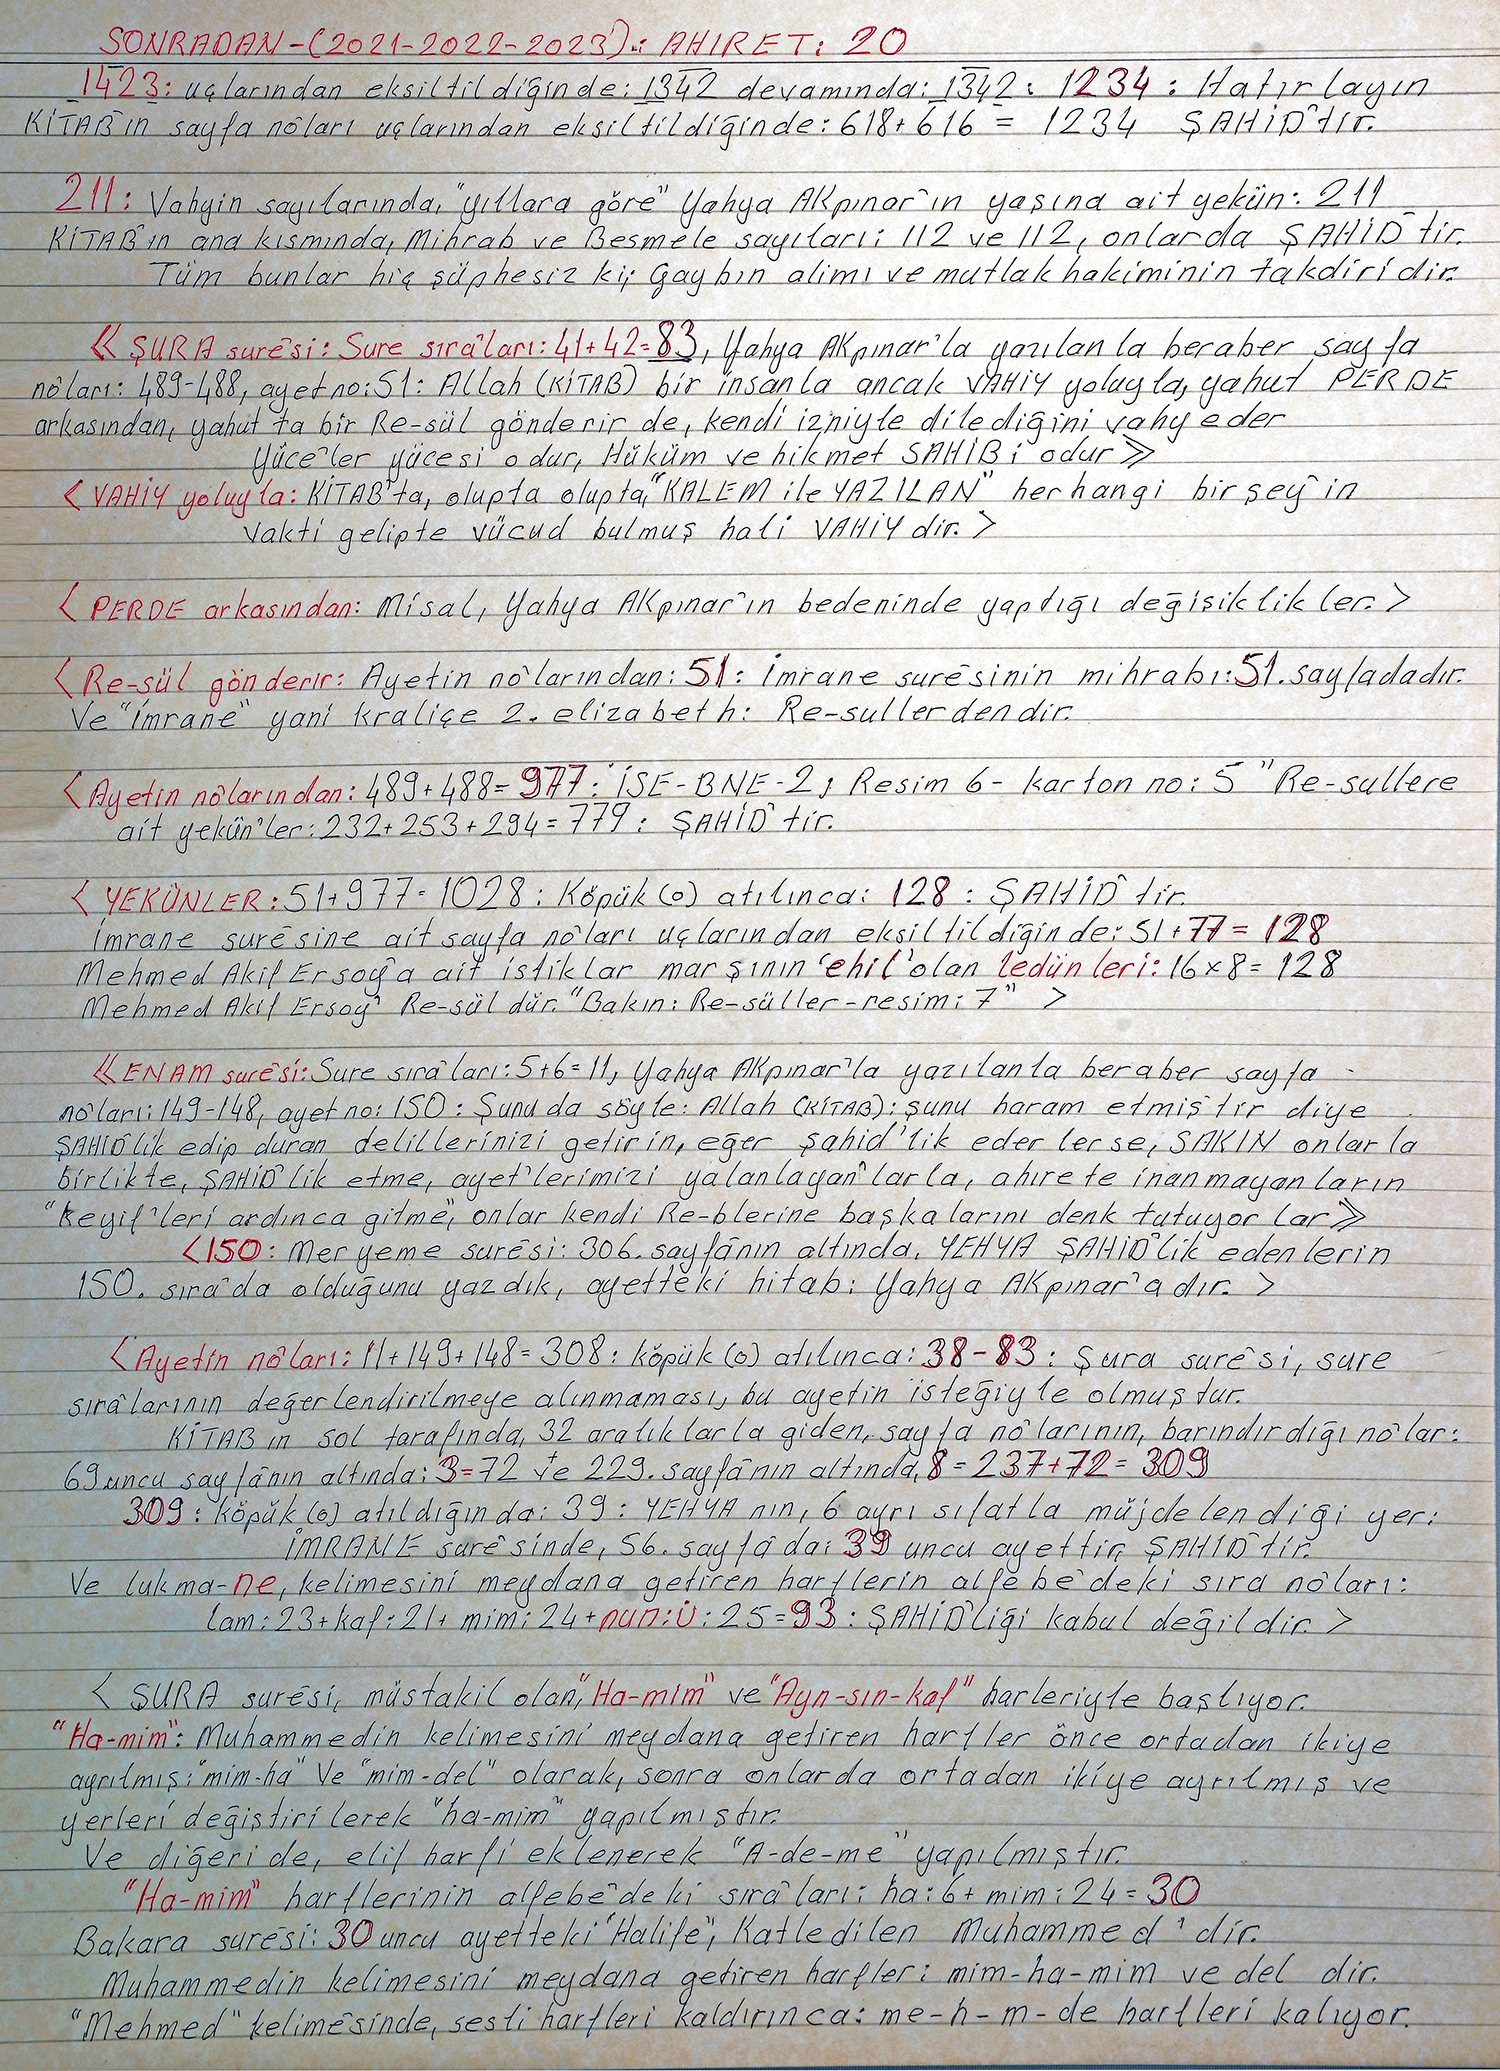 SONRADAN-(2021-2022-2023): AHIRET: 20
1423: uçlarından eksiltildiğinde: 1342 devamında: 1342: 1234: Hatırlayın
KİTAB'ın sayfa nôları uçlarından eksiltildiğinde: 618+616 = 1234 ŞAHİD'tır.
211: Vahyin sayılarında, "yıllara göre" Yahya AKpınar'ın yaşına ait yekün: 211
KİTAB'ın ana kısmında, Mihrab ve Besmele sayıları: 112 ve 112, onlarda ŞAHİD'tir.
Tüm bunlar hiç şüphesiz ki; Gaybın alimi ve mutlak hakiminin takdiridir.
« ŞURA surêsi: Sure sıra'ları: 41+42=83, Yahya AKpınar'la yazılanla beraber sayfa
nôları: 489-488, ayet no: 51: Allah (KİTAB) bir insanla ancak VAHİY yoluyla, yahut PERDE
arkasından, yahut ta bir Re-sül gönderir de, kendi izniyle dilediğini vahyeder
Yüce'ler yücesi odur, Hüküm ve hikmet SAHİBi odur »
< VAHİY yoluyla: KİTAB'ta, olupta olupta, "KALEM ile YAZILAN" herhangi bir şey'in
vakti gelipte vücud bulmuş hali VAHİY dir. >
< PERDE arkasından: Misal, Yahya AKpınar'ın bedeninde yaptığı değişiklikler. >
< Re-sül gönderir: Ayetin nô'larından: 51: İmrane surêsinin mihrabı: 51. sayfadadır.
Ve "İmrane" yani kraliçe 2. elizabeth: Re-sullerdendir.
< Ayetin nôlarından: 489+488= 977: İSE-BNE-2, Resim 6- karton no: 5 "Re-sullere
ait yekün'ler: 232+253+294=779: ŞAHİD'tir.
< YEKÜNLER: 51+977=1028: Köpük (o) atılınca: 128: ŞAHİD'tir.
İmrane surêsine ait sayfa nôları uçlarından eksiltildiğinde: 51+77= 128
Mehmed Akif Ersoy'a ait istiklar marşının 'ehil' olan ledünleri: 16x8=128
Mehmed Akif Ersoy' Re-sül dür. "Bakın: Re-süller-resim: 7" >
« ENAM surêsi: Sure sıra'ları: 5+6=11, Yahya AKpınar'la yazılanla beraber sayfa
nôları: 149-148, ayet no: 150: Şunu da söyle: Allah (KİTAB): şunu haram etmiştir diye
ŞAHİD'lik edip duran delillerinizi getirin, eğer şahid'lik ederlerse, SAKIN onlarla
birlikte, ŞAHİD'lik etme, ayet'lerimizi yalanlayan'larla, ahırete inanmayanların
"keyif'leri ardınca gitme", onlar kendi Re-blerine başkalarını denk tutuyorlar »
<150: Meryeme surêsi: 306. sayfânın altında, YEHYA ŞAHİD'lik edenlerin
150. sıra'da olduğunu yazdık, ayetteki hitab: Yahya AKpınar'adır. >
< Ayetin nôları: 11+149+148=308: köpük (o) atılınca: 38-83: Şura surêsi, sure
sırâlarının değerlendirilmeye alınmaması, bu ayetin isteğiyle olmuştur.
KİTAB ın sol tarafında, 32 aralıklarla giden, sayfa nô'larının, barındırdığı nôlar:
69uncu sayfânın altında: 3=72 ve 229. sayfânın altında, 8=237+72=309
309: köpük (o) atıldığında: 39: YEHYA nın, 6 ayrı sıfatla müjdelendiği yer:
İMRANE surêsinde, 56. sayfâda: 39 uncu ayettir, ŞAHİD'tir.
Ve lukma-ne, kelimesini meydana getiren harflerin alfebe'deki sıra nôları:
lam: 23+kaf: 21+ mim: 24+nun: ü: 25=93: ŞAHİD'liği kabul değildir. >
< ŞURA surêsi, müstakil olan, "Ha-mim" ve "Ayn-sın-kaf" harleriyle başlıyor.
"Ha-mim": Muhammedin kelimesini meydana getiren harfler önce ortadan ikiye
ayrılmış: "mim-ha" Ve "mim-del" olarak, sonra onlarda ortadan ikiye ayrılmış ve
yerleri değiştirilerek "ha-mim" yapılmıştır.
Ve diğeri de, elif harfi eklenerek "A-de-me" yapılmıştır.
"Ha-mim" harflerinin alfebe'deki sıra'ları: ha: 6+ mim: 24=30
Bakara surêsi: 30 uncu ayetteki "Halife", Katledilen Muhammed' dir.
Muhammedin kelimesini meydana getiren harfler: mim-ha-mim ve del dir.
"Mehmed" kelimêsinde, sesli harfleri kaldırınca: me-h-m-de harfleri kalıyor.